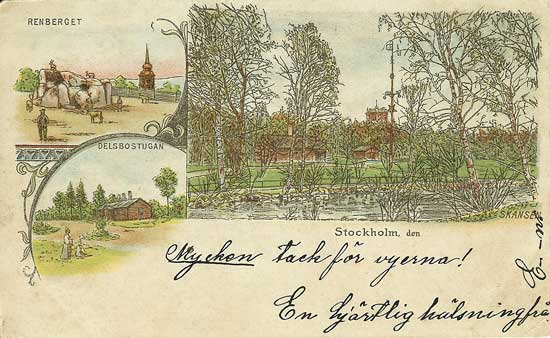 RENBERGET
DELSBOSTUGAN
SKANSEN
Stockholm, den
Mycken tack för vyerna!
En hjärtlig hälsning fra